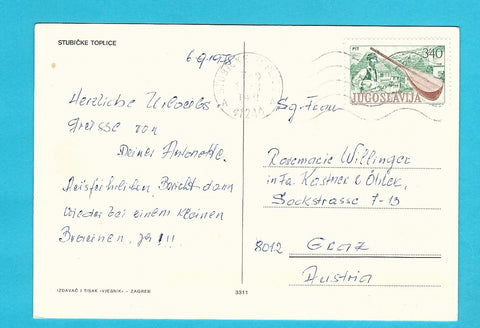 STUBIČKE TOPLICE
6.9.1978
Herzliche Urlaubs-
grüsse von
Deiner Antonette.
Ausführlichen Bericht dann
wieder bei einem kleinen
Braunen, ja!!!
IZDAVAČ I TISAK «VJESNIK» – ZAGREB
3311
PTT
340
JUGOSLAVIJA
Sg. Frau
Rosemarie Willinger
in Fa. Kastner & Öhler,
Sackstrasse 7-13
8012 GRAZ
Austria